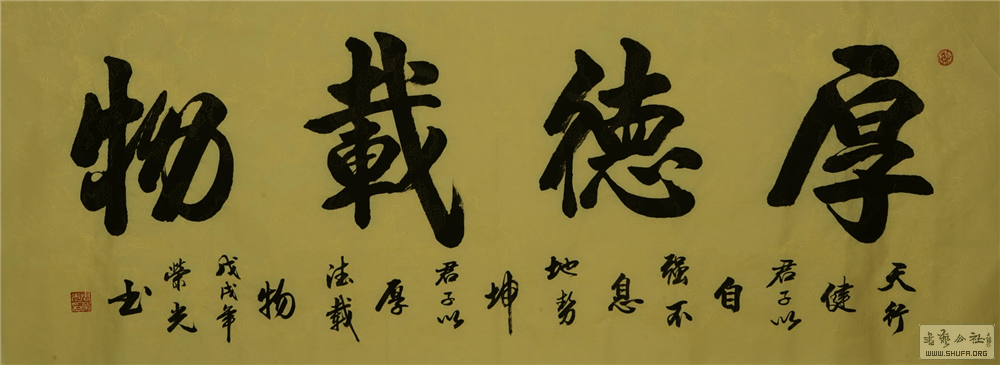 厚德載物
天行
健
君子以
自
强不
息
地势
坤
君子以
厚
德載
物
戊戌年
荣光
书
书艺公社
WWW.SHUFA.ORG